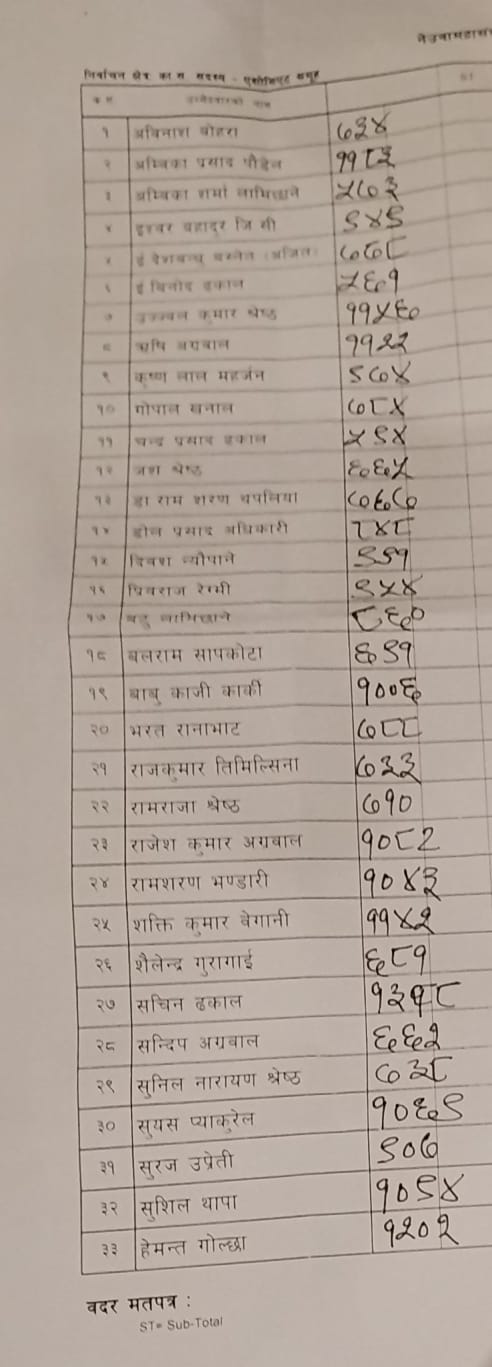 नेउवामहास
निर्वाचन क्षेत्र का स सदस्य - एसोसिएट समूह
क्र सं उम्मेदवारको नाम ST
१ अबिनाश बोहरा ७३४
२ अम्बिका प्रसाद पौडेल ११८३
३ अम्बिका शर्मा लामिछाने ५७३
४ इश्वर बहादुर जि सी ९४९
५ ई देशबन्धु बस्नेत (अजित) ७७८
६ ई बिनोद ढकाल ५६१
७ उज्ज्वल कुमार श्रेष्ठ ११४६
८ ऋषि अग्रवाल ११२२
९ कृष्ण लाल महर्जन ९७४
१० गोपाल खनाल ७८४
११ चन्द्र प्रसाद ढकाल ५९४
१२ जश श्रेष्ठ ६६५
१३ डा राम शरण चपलिया ७६७
१४ ढोल प्रसाद अधिकारी ८४८
१५ दिवश न्यौपाने ९९१
१६ प्रिवराज रेग्मी ९५४
१७ बटु लामिछाने ८६०
१८ बलराम सापकोटा ६९१
१९ बाबु काजी कार्की १००६
२० भरत रानाभाट ७८८
२१ राजकुमार तिमिल्सिना ७३३
२२ रामराजा श्रेष्ठ ७१०
२३ राजेश कुमार अग्रवाल १०८२
२४ रामशरण भण्डारी १०४३
२५ शक्ति कुमार बेगानी ११४२
२६ शैलेन्द्र गुरागाई ६८१
२७ सचिन ढकाल १३१८
२८ सन्दिप अग्रवाल ६६२
२९ सुनिल नारायण श्रेष्ठ ७३८
३० सुयस प्याकुरेल १०६९
३१ सुरज उप्रेती ९०७
३२ सुशिल थापा १०९४
३३ हेमन्त गोल्छा १२०२
वदर मतपत्र :
ST= Sub-Total